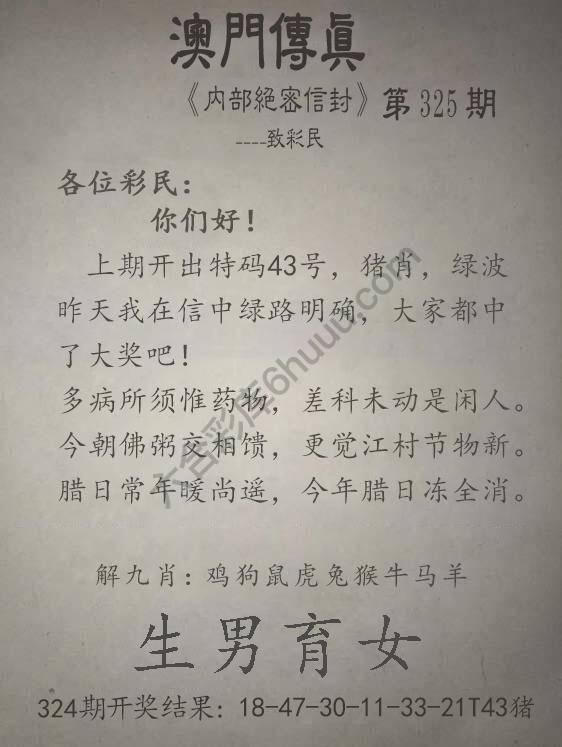 澳門傳眞
《内部絕密信封》第325期
----致彩民
各位彩民：
你们好！
上期开出特码43号，猪肖，绿波
昨天我在信中绿路明确，大家都中
了大奖吧！
多病所须惟药物，差科未动是闲人。
今朝佛粥交相馈，更觉江村节物新。
腊日常年暖尚遥，今年腊日冻全消。
解九肖：鸡狗鼠虎兔猴牛马羊
生男育女
324期开奖结果：18-47-30-11-33-21T43猪
六合彩库6huuu.com